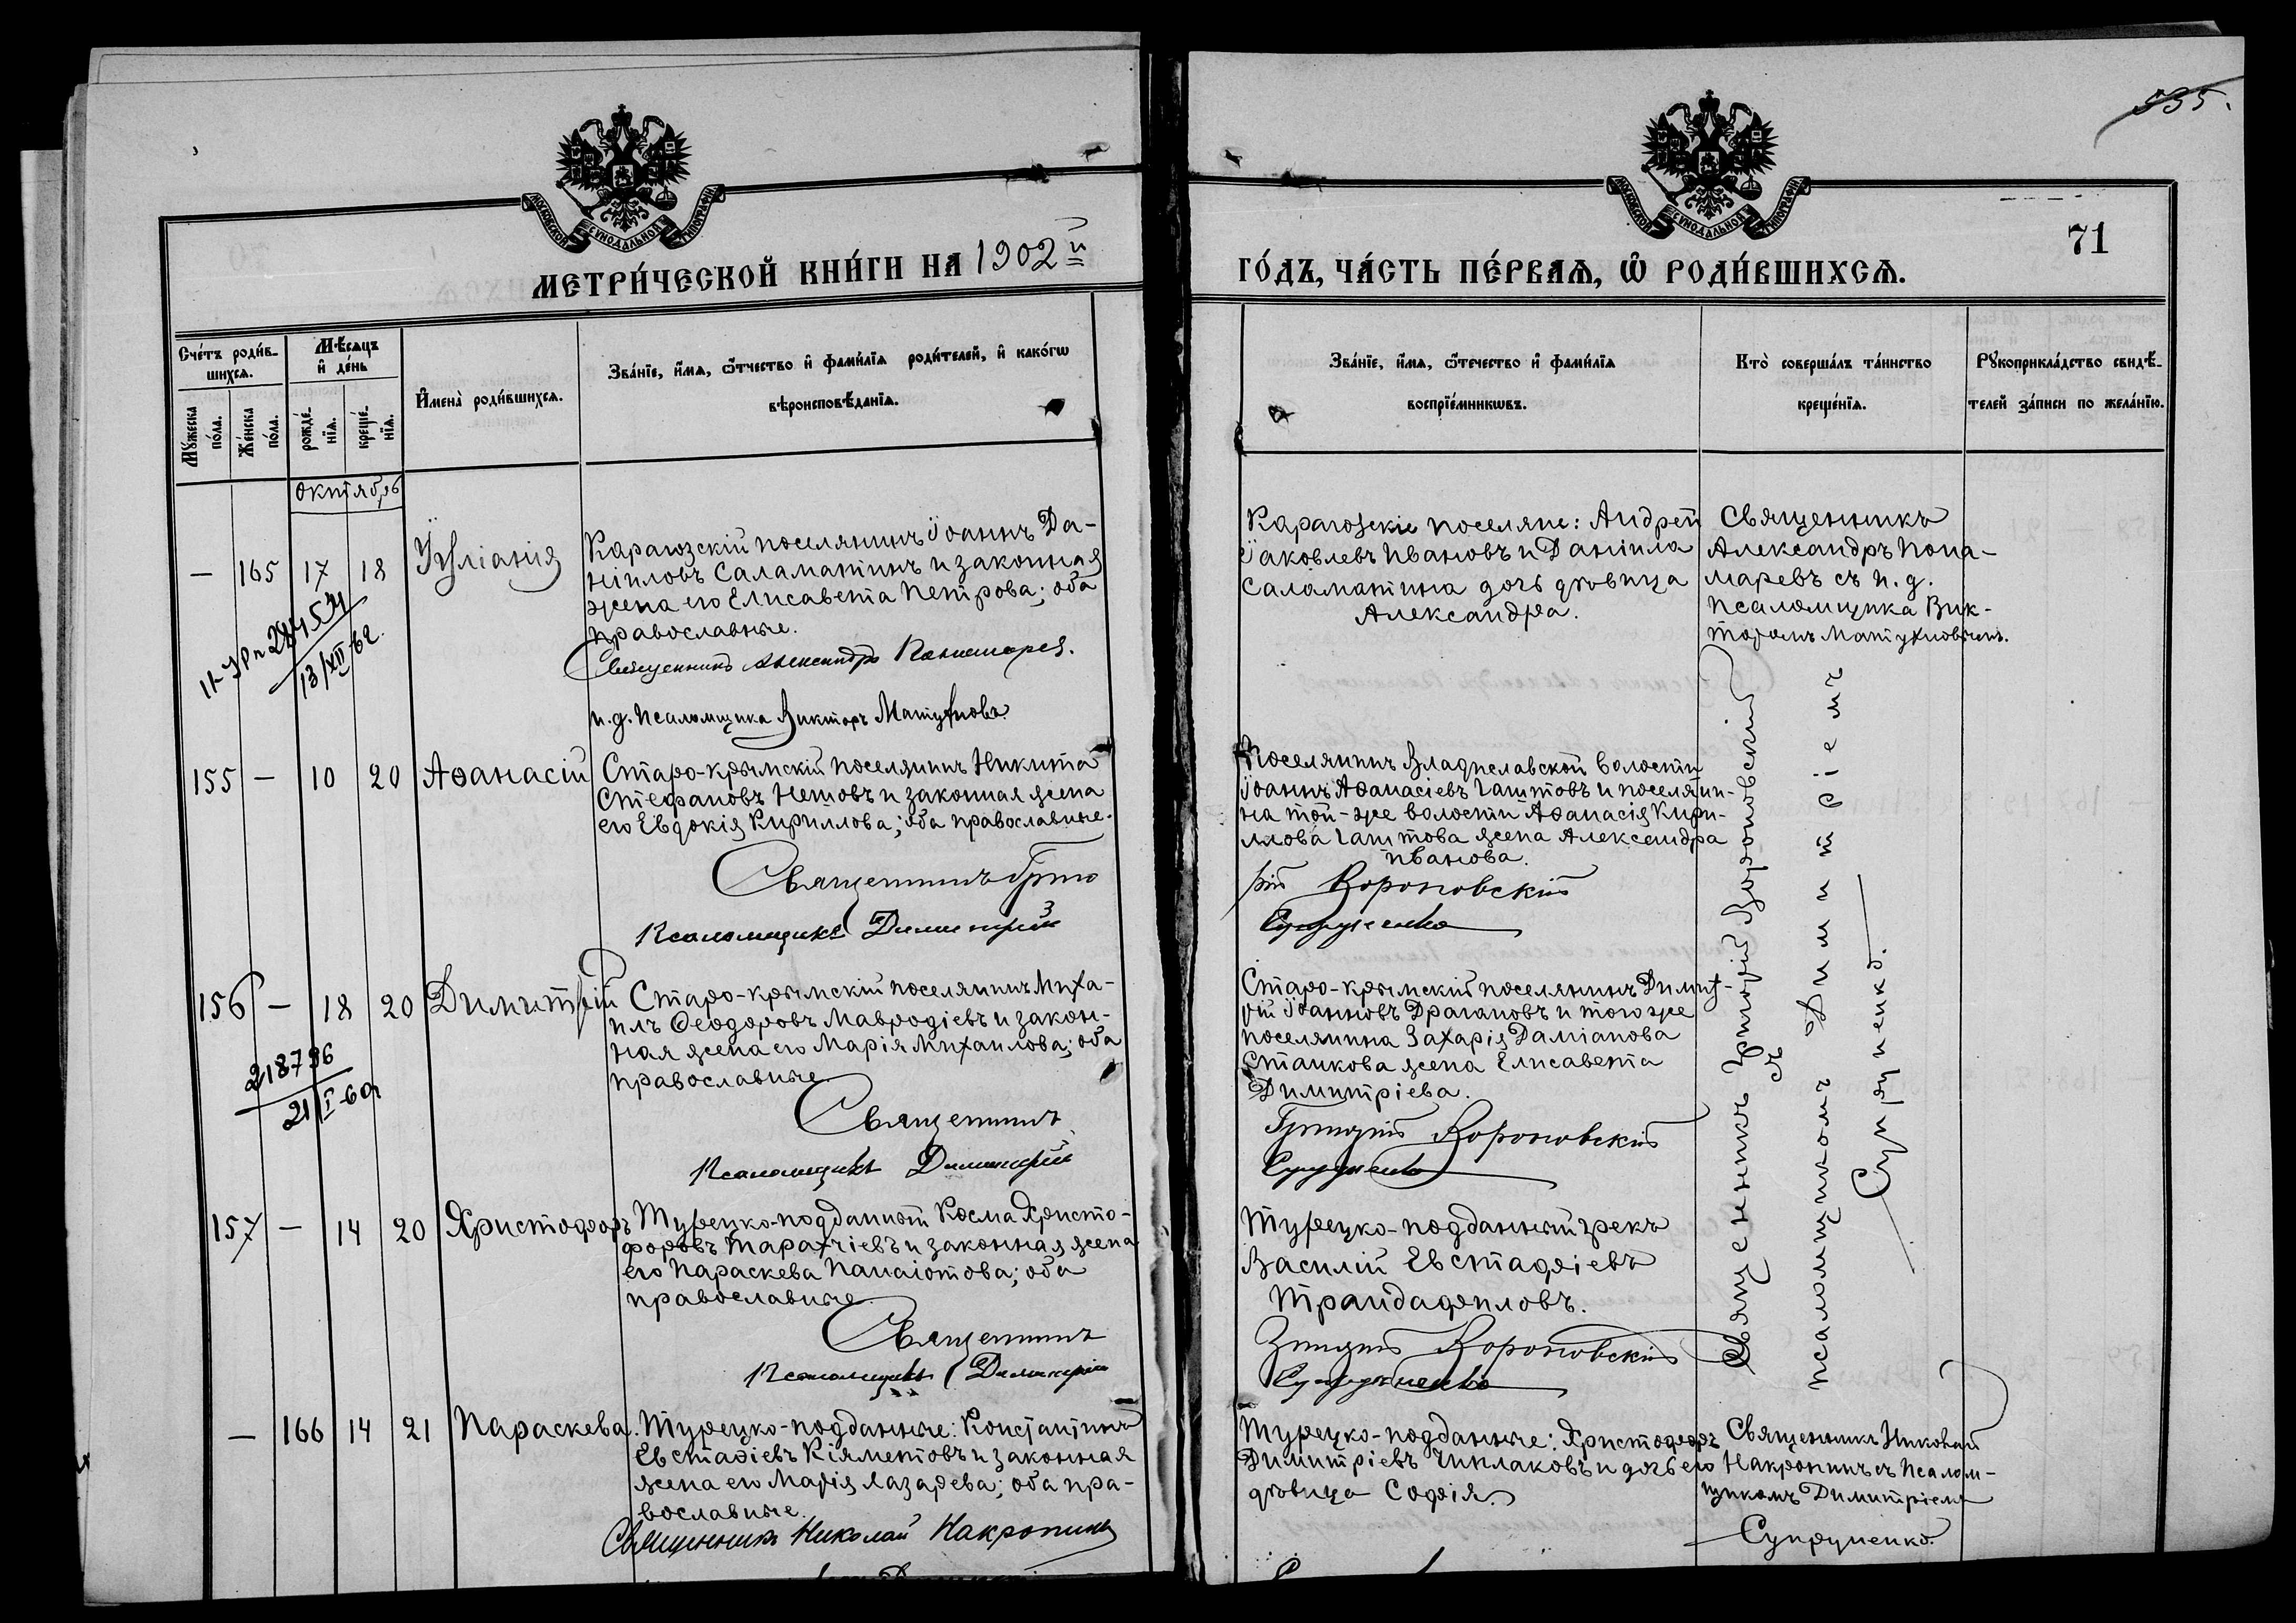 535.
МОСКОВСКОЙ СѴНОДАЛЬНОЙ ТИПОГРАФІИ
МОСКОВСКОЙ СѴНОДАЛЬНОЙ ТИПОГРАФІИ
71
МЕТРИ́ЧЕСКОЙ КНИ́ГИ НА 1902й
ГО́ДЪ, ЧА́СТЬ ПЕ́РВАѦ, Ѡ҆ РОДИ́ВШИХСѦ.
Сче́тъ роди́в-
шихсѧ.
Мѣ́сѧцъ
и҆ де́нь
Мꙋ́жеска
по́ла.
Же́нска
по́ла.
рожде́-
нїѧ.
креще́-
нїѧ.
И҆мена̀ роди́вшихсѧ.
Зва́нїе, и҆́мѧ, ѻ҆́тчество и҆ фами́лїѧ роди́телей, и҆ како́гѡ
вѣроисповѣ́данїѧ.
Зва́нїе, и҆́мѧ, ѻ҆́течество и҆ фами́лїѧ
воспрїе́мникѡвъ.
Кто̀ соверша́лъ та́инство
креще́нїѧ.
Рꙋкоприкла́дство свидѣ́-
телей за́писи по жела́нїю.
октябрь
— 165 17 18 Іуліанія
Карагозскій поселянинъ Іоаннъ Да-
ніиловъ Саламатинъ и законная
жена его Елисавета Петрова; оба
православные.
Священникъ Александръ Пономаревъ.
и.д. псаломщика Викторъ Матушовъ
13/XII-62.
Карагозскіе поселяне: Андрей
Іаковлевъ Ивановъ и Даніила
Саламатина дочь дѣвица
Александра.
Священникъ
Александръ Пона-
маревъ съ и. д.
псаломщика Вик-
торомъ
155 — 10 20 Аѳанасій
Старо-крымскій поселянинъ Никита
Стефановъ Нетовъ и законная жена
его Евдокія Кириллова; оба православные.
Священникъ Григо
Псаломщикъ Димитрій
Поселянинъ Владиславской волости
Іоаннъ Аѳанасіевъ и поселяни-
на той-же волости Аѳанасія Кири-
ллова жена Александра
Иванова.
рій Вороновскій
Супруненко
156 — 18 20 Димитрій
Старо-крымскій поселянинъ Миха-
илъ Ѳеодоровъ Мавродіевъ и закон-
ная жена его Марія Михаилова; оба
православные.
Священникъ
Псаломщикъ Димитрій
218796
21/I-60г
Старо-крымскій поселянинъ Димит-
рій Іоанновъ Драгановъ и того же
поселянина Захарія Даміанова
Станкова жена Елисавета
Димитріева.
Григорій Вороновскій
Супруненко
157 — 14 20 Христофоръ
Турецко-подданный Косма Христо-
форовъ Тарахчіевъ и законная жена
его Параскева Панаіотова; оба
православные.
Священникъ
Псаломщикъ Димитрій
Турецко-подданный грекъ
Василій Евстафіевъ
Трандафиловъ.
Григорій Вороновскій
Супруненко
Священникъ Григорій Вороновскій
съ
псаломщикомъ Димитріемъ
Супруненко.
— 166 14 21 Параскева.
Турецко-подданные: Константинъ
Евстафіевъ Кіяметовъ и законная
жена его Марія Лазарева; оба пра-
вославные.
Священникъ Николай Накропинъ
Турецко-подданные: Христофоръ
Димитріевъ Чиплаковъ и дочь его
дѣвица Софія.
Священникъ Николай
Накропинъ съ псалом-
щикомъ Димитріемъ
Супруненко.